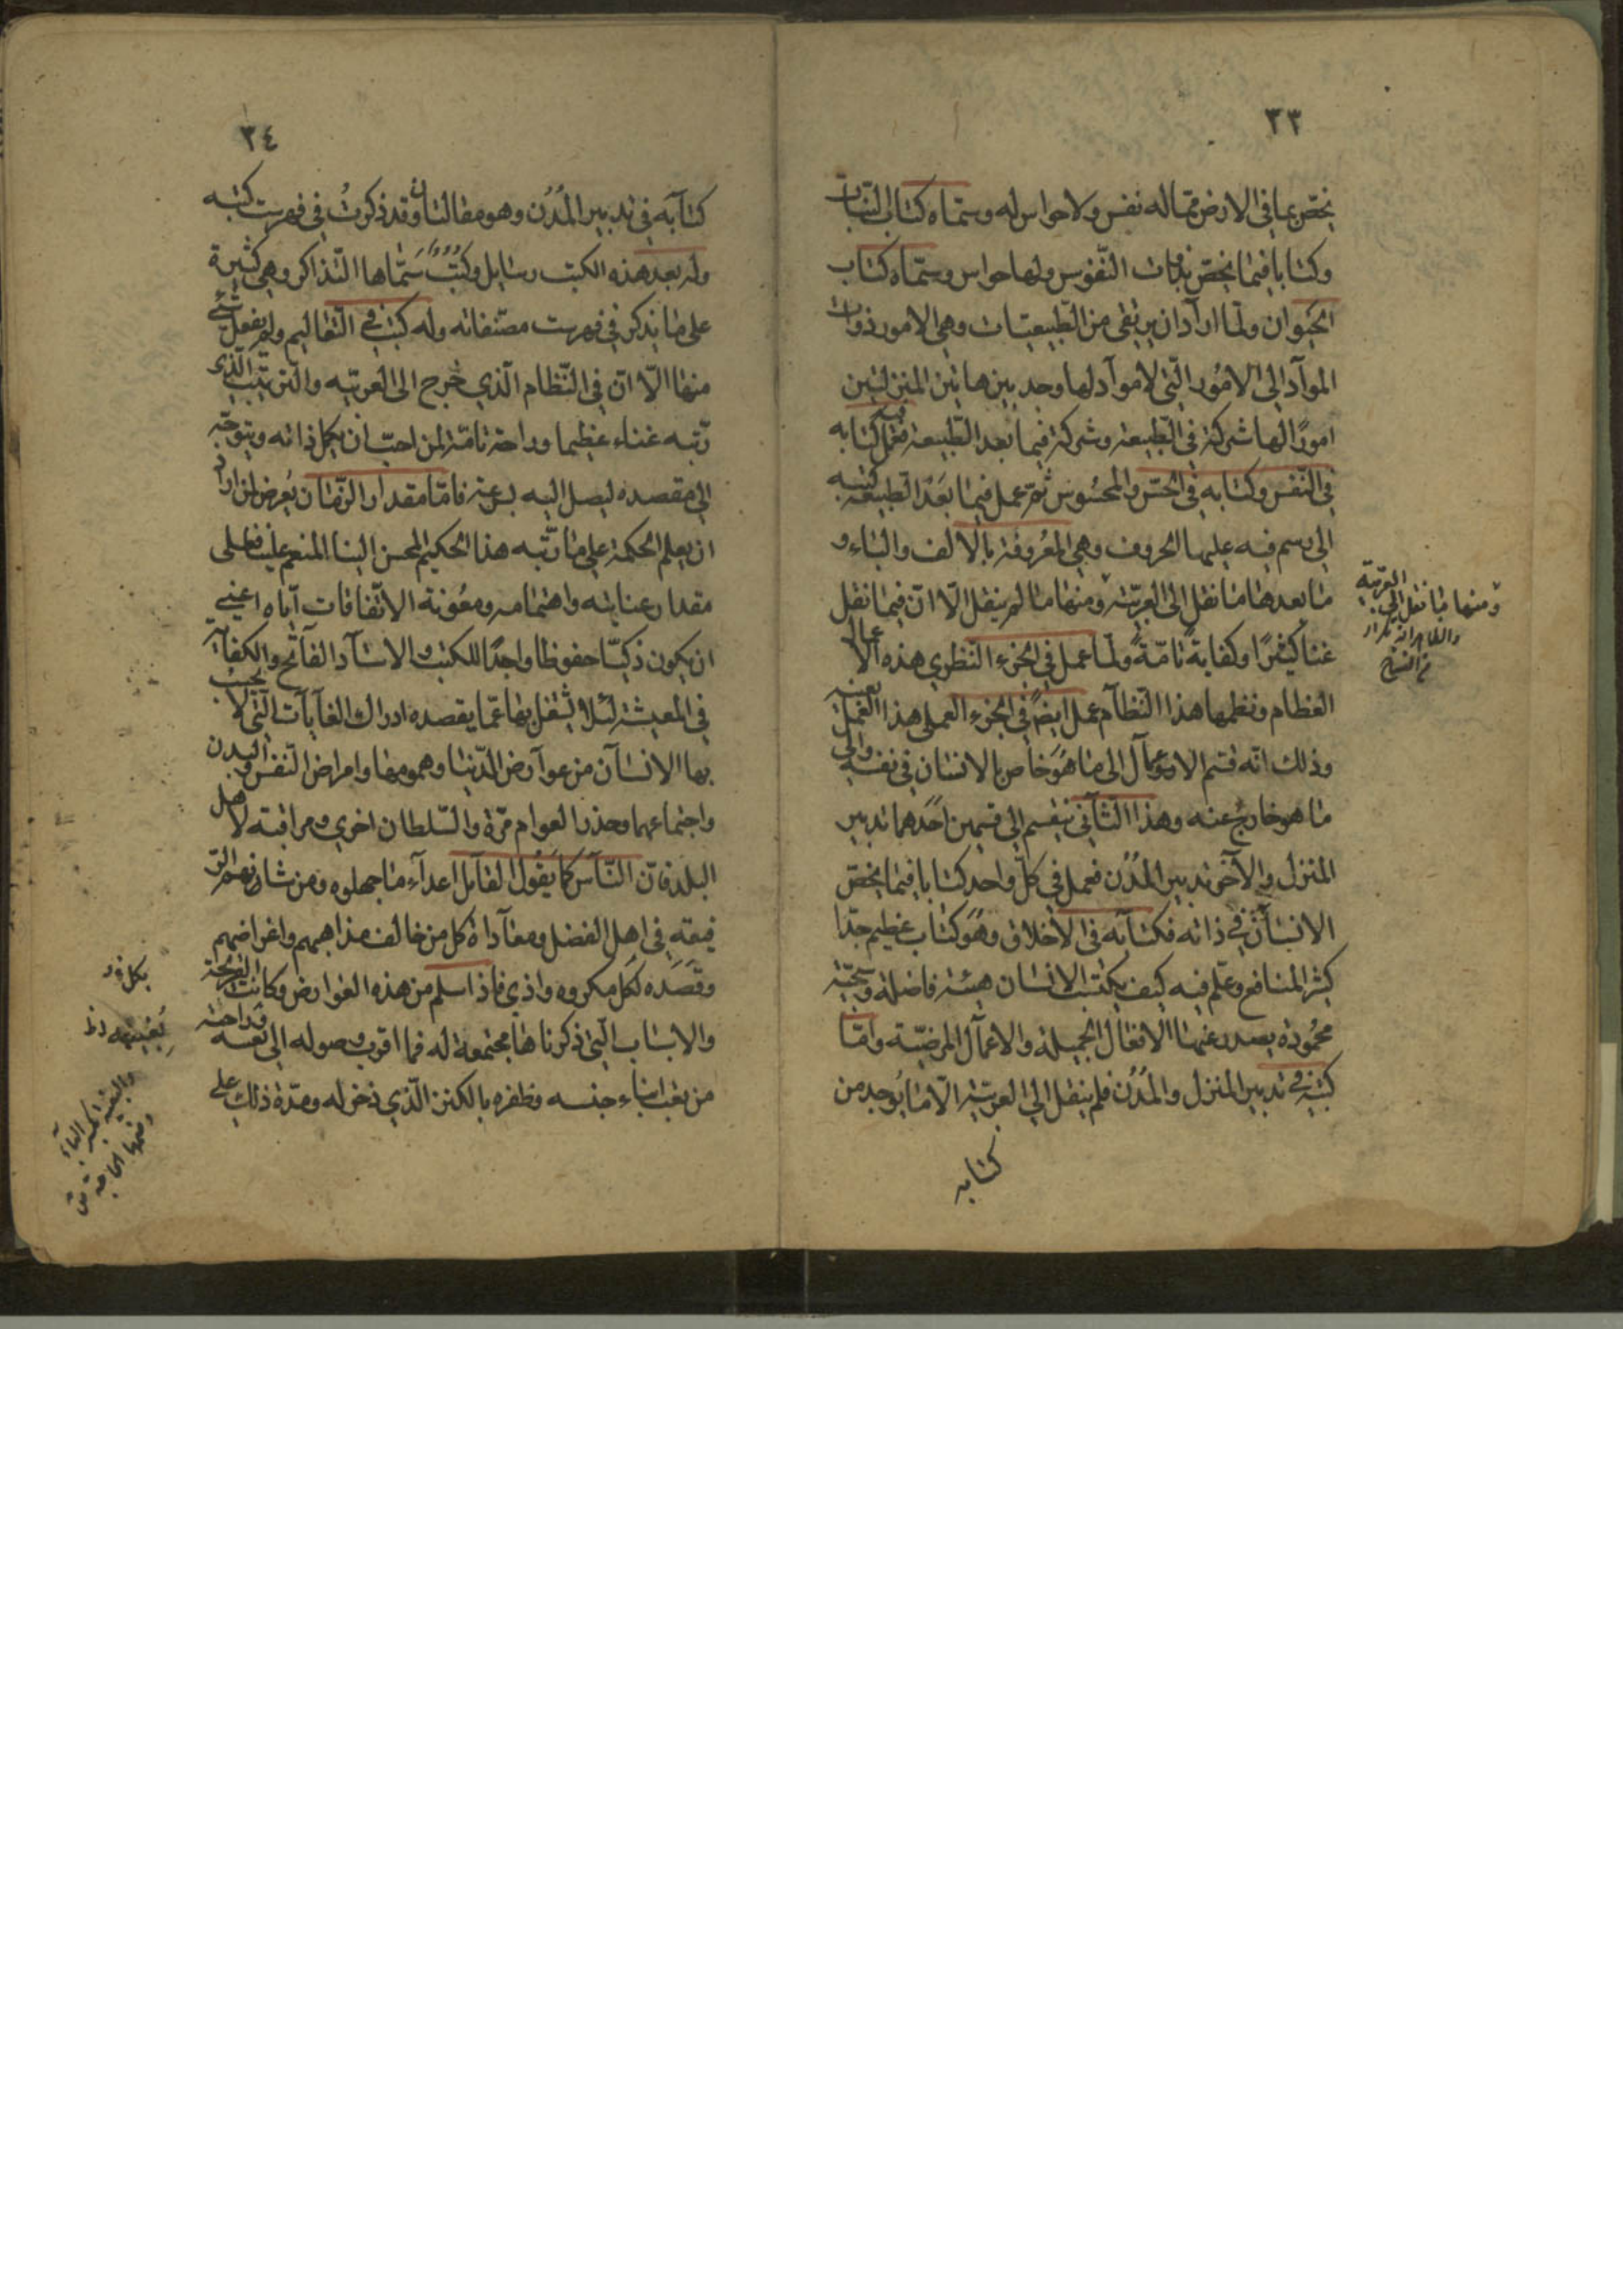 ٣٣
يختص بما في الارض مما له نفس ولا حواس له وسماه كتاب النبات
وكتابا فيما يختص بذوات النفوس ولها حواس وسماه كتاب
الحيوان ولما اراد ان يرتقى من الطبيعيات وهي الامور ذوات
المواد الى الامور التي لا مواد لها وجد بين هاتين المنزلتين
امورًا لها شركة في الطبيعة وشركة فيما بعد الطبيعة فعمل فيه كتابه
في النفس وكتابه في الحس والمحسوس ثم عمل فيما بعد الطبيعة كتبه
الى رسم فيه عليها الحروف وهي المعروفة بالالف والباء و
ما بعدها ما نقل الى العربية ومنها ما لم ينقل الا ان فيما نقل
غنا كثيرًا وكفاية تامّةً ولما عمل في الجزء النظري هذه الاعمال
العظام ونظمها هذا النظام عمل ايضًا في الجزء العملي هذا العمل بعينه
وذلك انه قسم الاعمال الى ما هو خاص بالانسان في نفسه والى
ما هو خارج عنه وهذا الثاني ينقسم الى قسمين احدهما تدبير
المنزل والآخر تدبير المُدُن فعمل في كل واحد كتابا فيما يختص
الانسان في ذاته فكتابه في الاخلاق وهو كتاب عظيم جدا
كثير المنافع وعلم فيه كيف يكتسب الانسان هيئة فاضلة وسجية
محمودة يصدر عنها الافعال الجميلة والاعمال المرضية واما
كتبه في تدبير المنزل والمدن فلم ينقل الى العربية الا ما يوجد من
كتابه
ومنها ما نقل الى العربية
والظاهر انه تكرار
من النساخ
٣٤
كتابه في تدبير المُدُن وهو مقالتان وقد ذكرتُ في فهرست كتبه
وله بعد هذه الكتب رسايل وكتبٌ سماها التذاكر وهي كثيرة
على ما يذكر في فهرست مصنفاته وله كتب في التعاليم ولم يفعل شئ
منها الا ان في النظام الذي خرج الى العربية والترتيب الذي
رتبه غناء عظيما وراحة تامة لمن احب ان يكمل ذاته ويتوجه
الى مقصده ليصل اليه بسرعة فاما مقدار الزمان يُعرض لمن اراد
ان يعلم الحكمة على ما رتبه هذا الحكيم المحسن الينا المنعم علينا فعلى
مقدار عنايته واهتمامه ومعونة الاتفاقات اياه اعني
ان يكون ذكيًّا حفوظا واجدًا للكتب والاستاد الفاتح والكفاية
في المعيشة لئلا يشغل بها عما يقصده ادراك الغايات التي لا يجب
بها الانسان من عوارض الدنيا وهمومها وامراض النفس والبدن
واجتماعهما وحذر العوام مرة والسلطان اخرى ومراقبة لاهل
البلد فان الناس كما يقول القايل اعداء ما جهلوه ومن شانهم الو
قيعة في اهل الفضل ومعاداة كل من خالف مذاهبهم واغراضهم
وقصده لكل مكروه واذى فاذا سلم من هذه العوارض وكانت القريحة
والاسباب التي ذكرناها مجتمعة له فما اقرب وصوله الى نفسه وراحته
من تعب ابناء جنسه وظفره بالكنز الذي ذخر له ومدة ذلك على